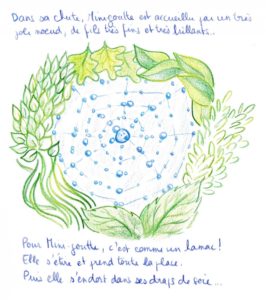 Dans sa chute, Mini-goutte est accueillie par un très
joli nœud, de fils très fins et très brillants...
Pour Mini-goutte, c'est comme un lamac !
Elle s'étire et prend toute la place.
Puis elle s'endort dans ses draps de soie...